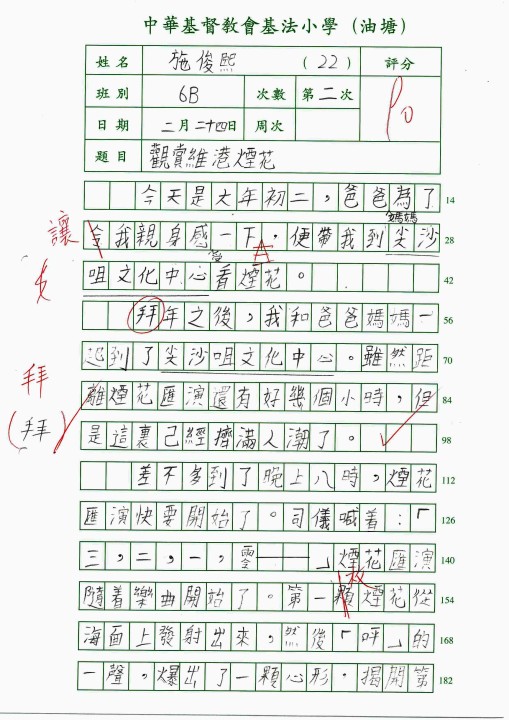 中華基督教會基法小學（油塘）
姓名 施俊熙 （22） 評分
班別 6B 次數 第二次 90
日期 二月二十四日 周次
題目 觀賞維港煙花
今天是大年初二，爸爸為了 14
媽媽
讓 令我親身感一下，便帶我到尖沙 28
咀文化中心看煙花。 42
拜年之後，我和爸爸媽媽一 56
起到了尖沙咀文化中心。雖然距 70
拜
離煙花匯演還有好幾個小時，但 84
（拜）
是這裏已經擠滿人潮了。 98
差不多到了晚上八時，煙花 112
匯演快要開始了。司儀喊着：「 126
三，二，一，零——」煙花匯演 140
枚
隨着樂曲開始了。第一顆煙花從 154
海面上發射出來，然後「呯」的 168
一聲，爆出了一顆心形，揭開第 182